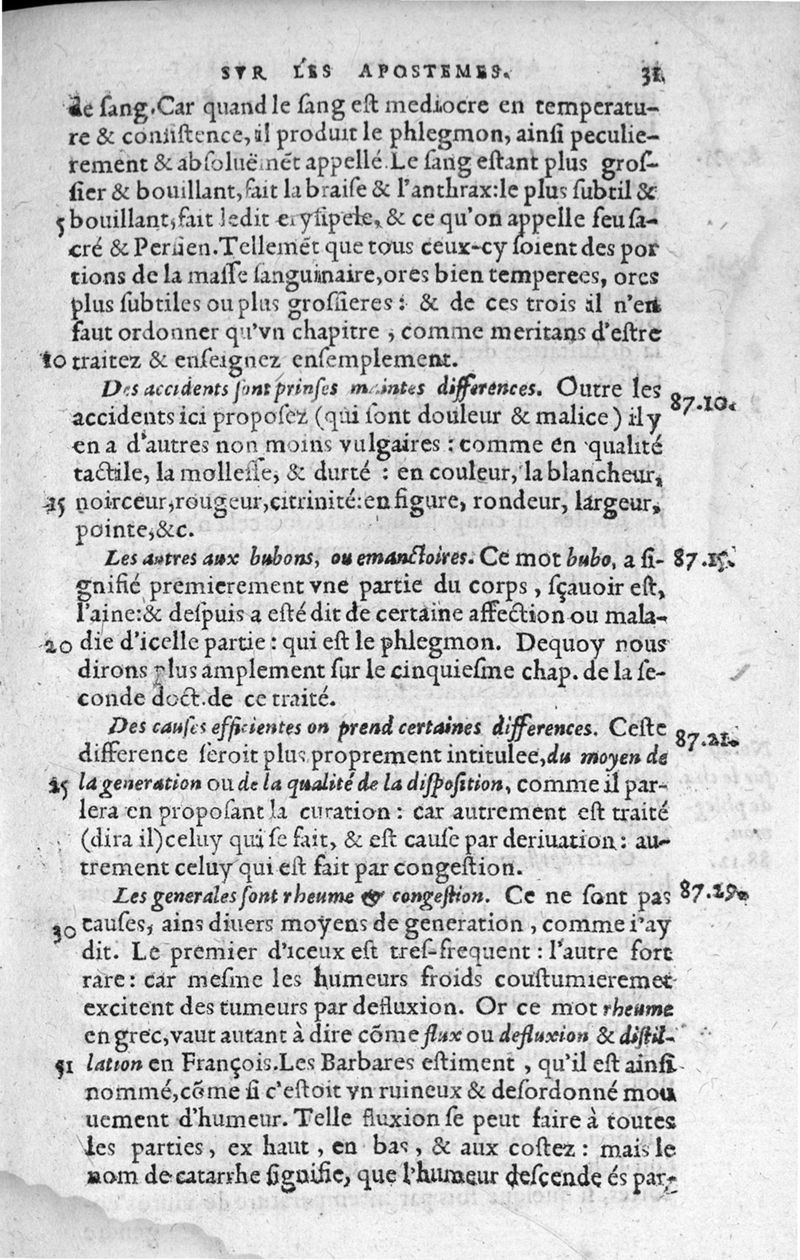 SVR LES APOSTEMES. 31
de sang. Car quand le sang est mediocre en temperatu-
re & consistence, il produit le phlegmon, ainsi peculie-
rement & absoluëmẽt appellé. Le sang estant plus gros-
sier & bouillant, fait la braise & l'anthrax: le plus subtil &
5 bouillant, fait ledit erysipele, & ce qu'on appelle feu sa-
cré & Persien. Tellemẽt que tous ceux-cy soient des por
tions de la masse sanguinaire, ores bien temperees, ores
plus subtiles ou plus grossieres: & de ces trois il n'en
faut ordonner qu'vn chapitre, comme meritans d'estre
10 traitez & enseignez ensemplement.
Des accidents sont prinses maintes differences. Outre les 87.10.
accidents ici proposez (qui sont douleur & malice) il y
en a d'autres non moins vulgaires: comme en qualité
tactile, la mollesse, & durté: en couleur, la blancheur,
15 noirceur, rougeur, citrinité: en figure, rondeur, largeur,
pointe, &c.
Les autres aux bubons, ou emanctoires. Ce mot bubo, a si- 87.15.
gnifié premierement vne partie du corps, sçauoir est,
l'aine: & despuis a esté dit de certaine affection ou mala-
20 die d'icelle partie: qui est le phlegmon. Dequoy nous
dirons plus amplement sur le cinquiesme chap. de la se-
conde doct. de ce traité.
Des causes efficientes on prend certaines differences. Ceste 87.21.
difference seroit plus proprement intitulee, du moyen de
25 la generation ou de la qualité de la disposition, comme il par-
lera en proposant la curation: car autrement est traité
(dira il) celuy qui se fait, & est cause par deriuation: au-
trement celuy qui est fait par congestion.
Les generales sont rheume & congestion. Ce ne sont pas 87.29.
30 causes, ains diuers moyens de generation, comme i'ay
dit. Le premier d'iceux est tres-frequent: l'autre fort
rare: car mesme les humeurs froids coustumieremet
excitent des tumeurs par defluxion. Or ce mot rheume
en grec, vaut autant à dire cõme flux ou defluxion & distil-
51 lation en François. Les Barbares estiment, qu'il est ainsi
nommé, cõme si c'estoit vn ruineux & desordonné mou
uement d'humeur. Telle fluxion se peut faire à toutes
les parties, ex haut, en bas, & aux costez: mais le
nom de catarrhe signifie, que l'humeur descende és par-